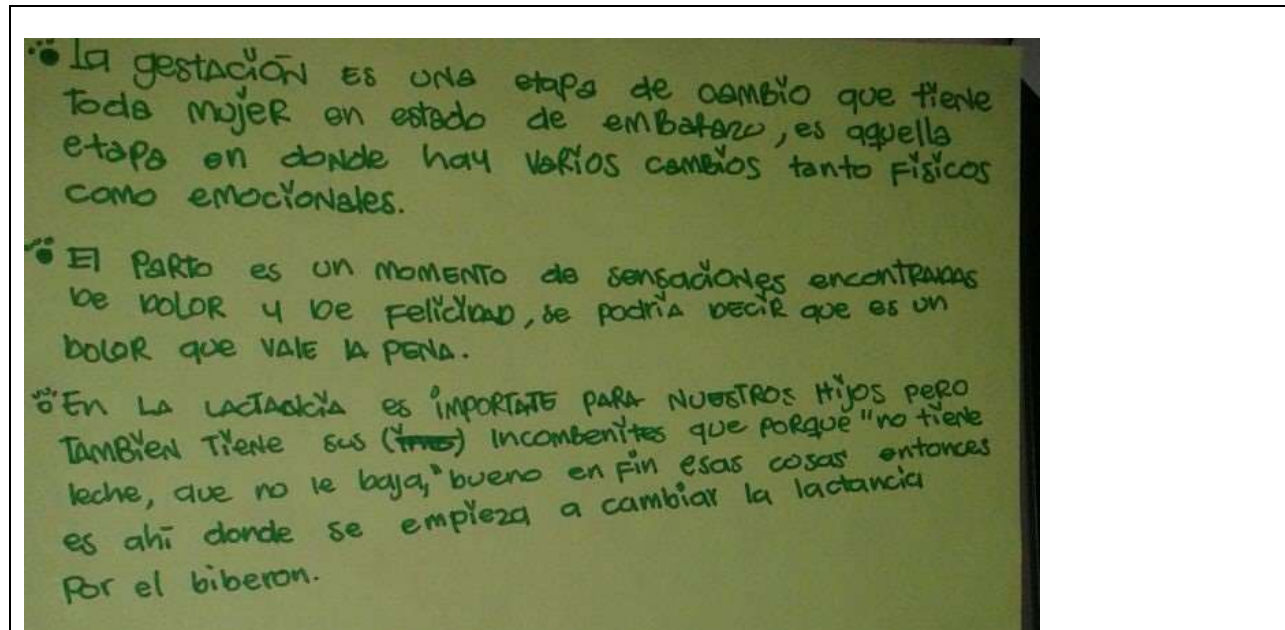 La gestación es una etapa de cambio que tiene
Toda mujer en estado de embarazo, es aquella
etapa en donde hay varios cambios tanto físicos
como emocionales.
El parto es un momento de sensaciones encontradas
de dolor y de felicidad, se podría decir que es un
dolor que vale la pena.
En la lactancia es importate para nuestros hijos pero
tambien tiene sus () incombenites que porque "no tiene
leche, que no le baja," bueno en fin esas cosas entonces
es ahí donde se empieza a cambiar la lactancia
Por el biberon.